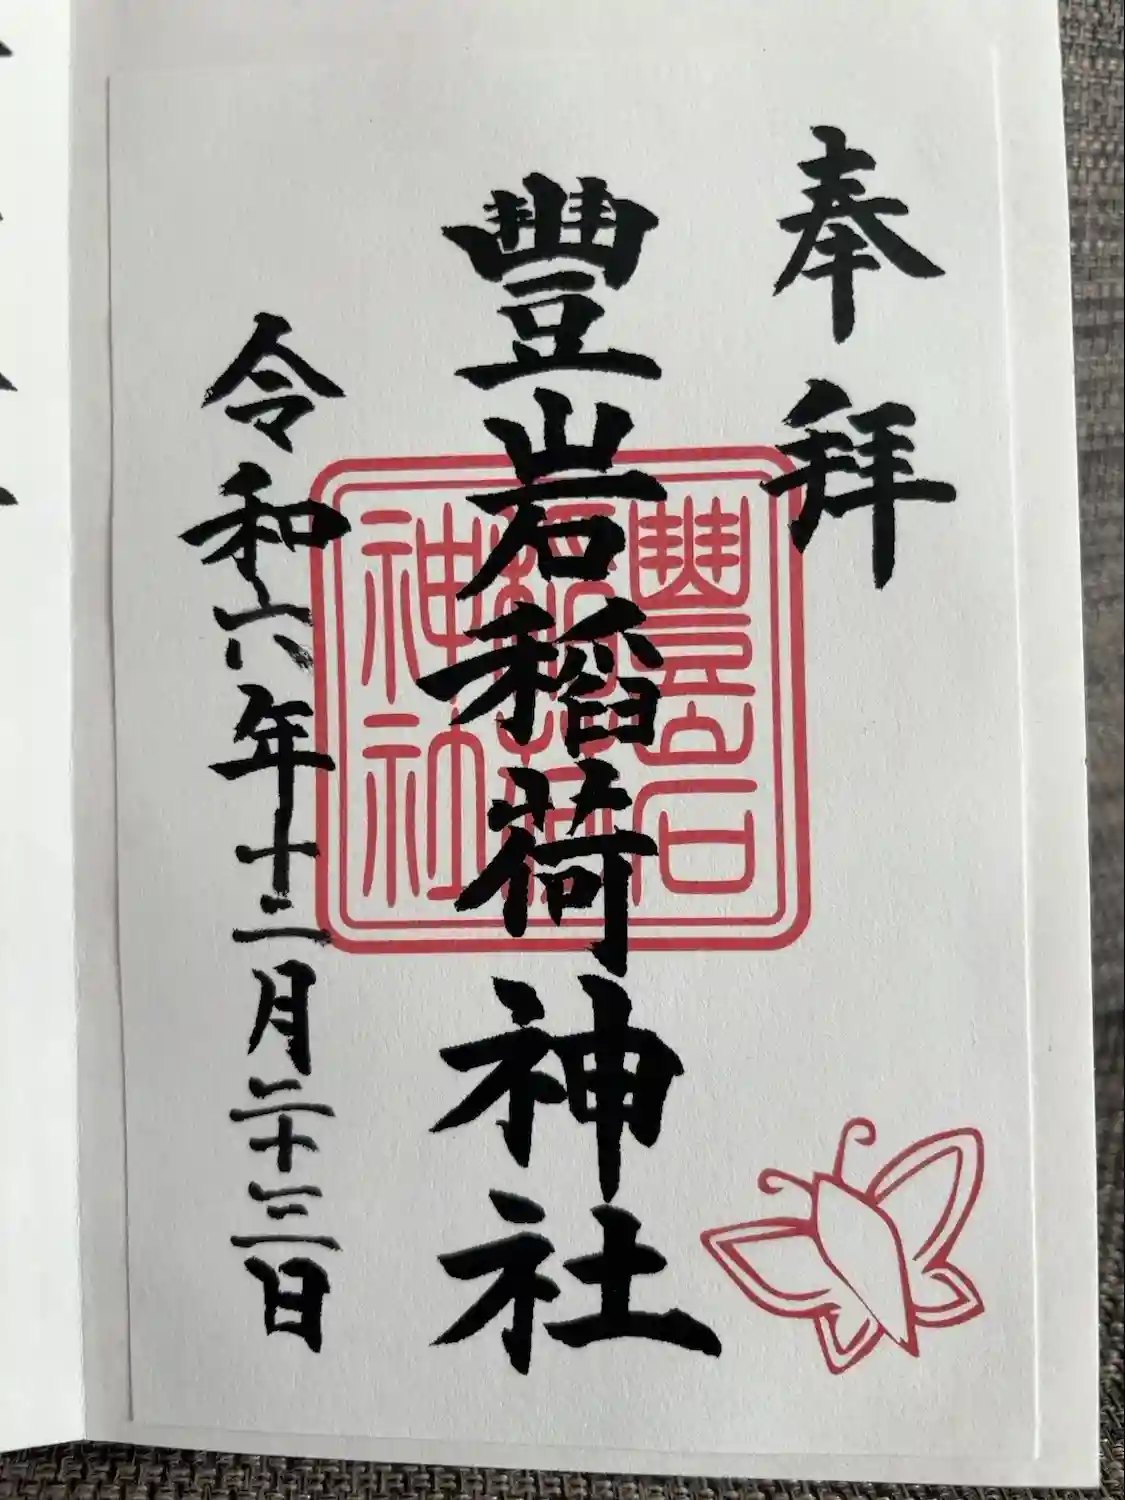 奉拝
豐岩稲荷神社
豐岩
稲荷
神社
令和六年十二月二十三日